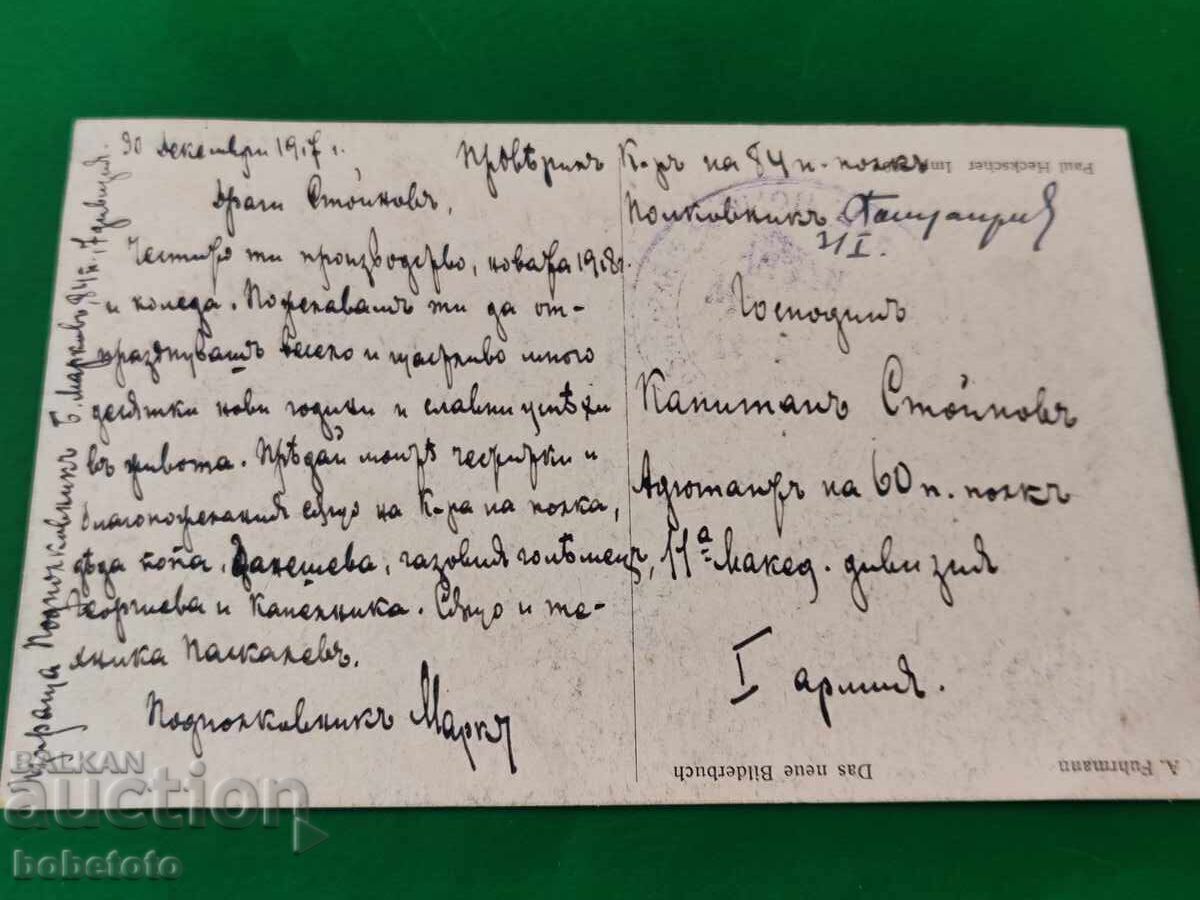 30 декември 1917 г.
Драги Стойновъ,
Честито ти производство, новата 1918 г.
и коледа. Пожелавамъ ти да от-
празднувашъ весело и щастливо много
десятки нови години и славни успѣхи
въ живота. Прѣдай моитѣ честитки и
благопожелания също на К-ра на полка,
дѣда попа, Данешева, газовия голѣмецъ,
Георгиева и Капелника. Също и те-
Подполковникъ Марк
Изпраща Подполковникъ Б. Марковъ, 84 п. 17 дивизия.
Провѣрилъ К-ръ на 84 п. полкъ
Полковникъ
Господинъ
Капитанъ Стойновъ
Адютантъ на 60 п. полкъ
11ª Макед. дивизия
I армия.
Paul Heckscher Imp
Das neue Bilderbuch
A. Fuhrmann
BALKAN
auction
bobefoto